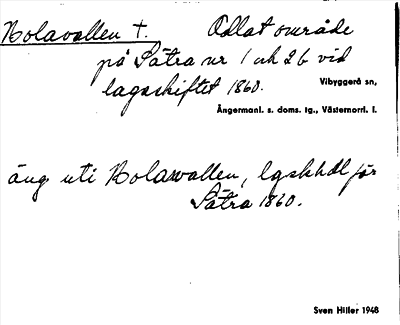 Nolavallen t. Odlat område
på Sätra nr 1 och 2 b vid
lagaskiftet 1860. Vibyggerå sn,
Ångermanl. s. doms. tg., Västernorrl. l.
äng uti Nolavallen, lgskhdl för
Sätra 1860.
Sven Hiller 1948